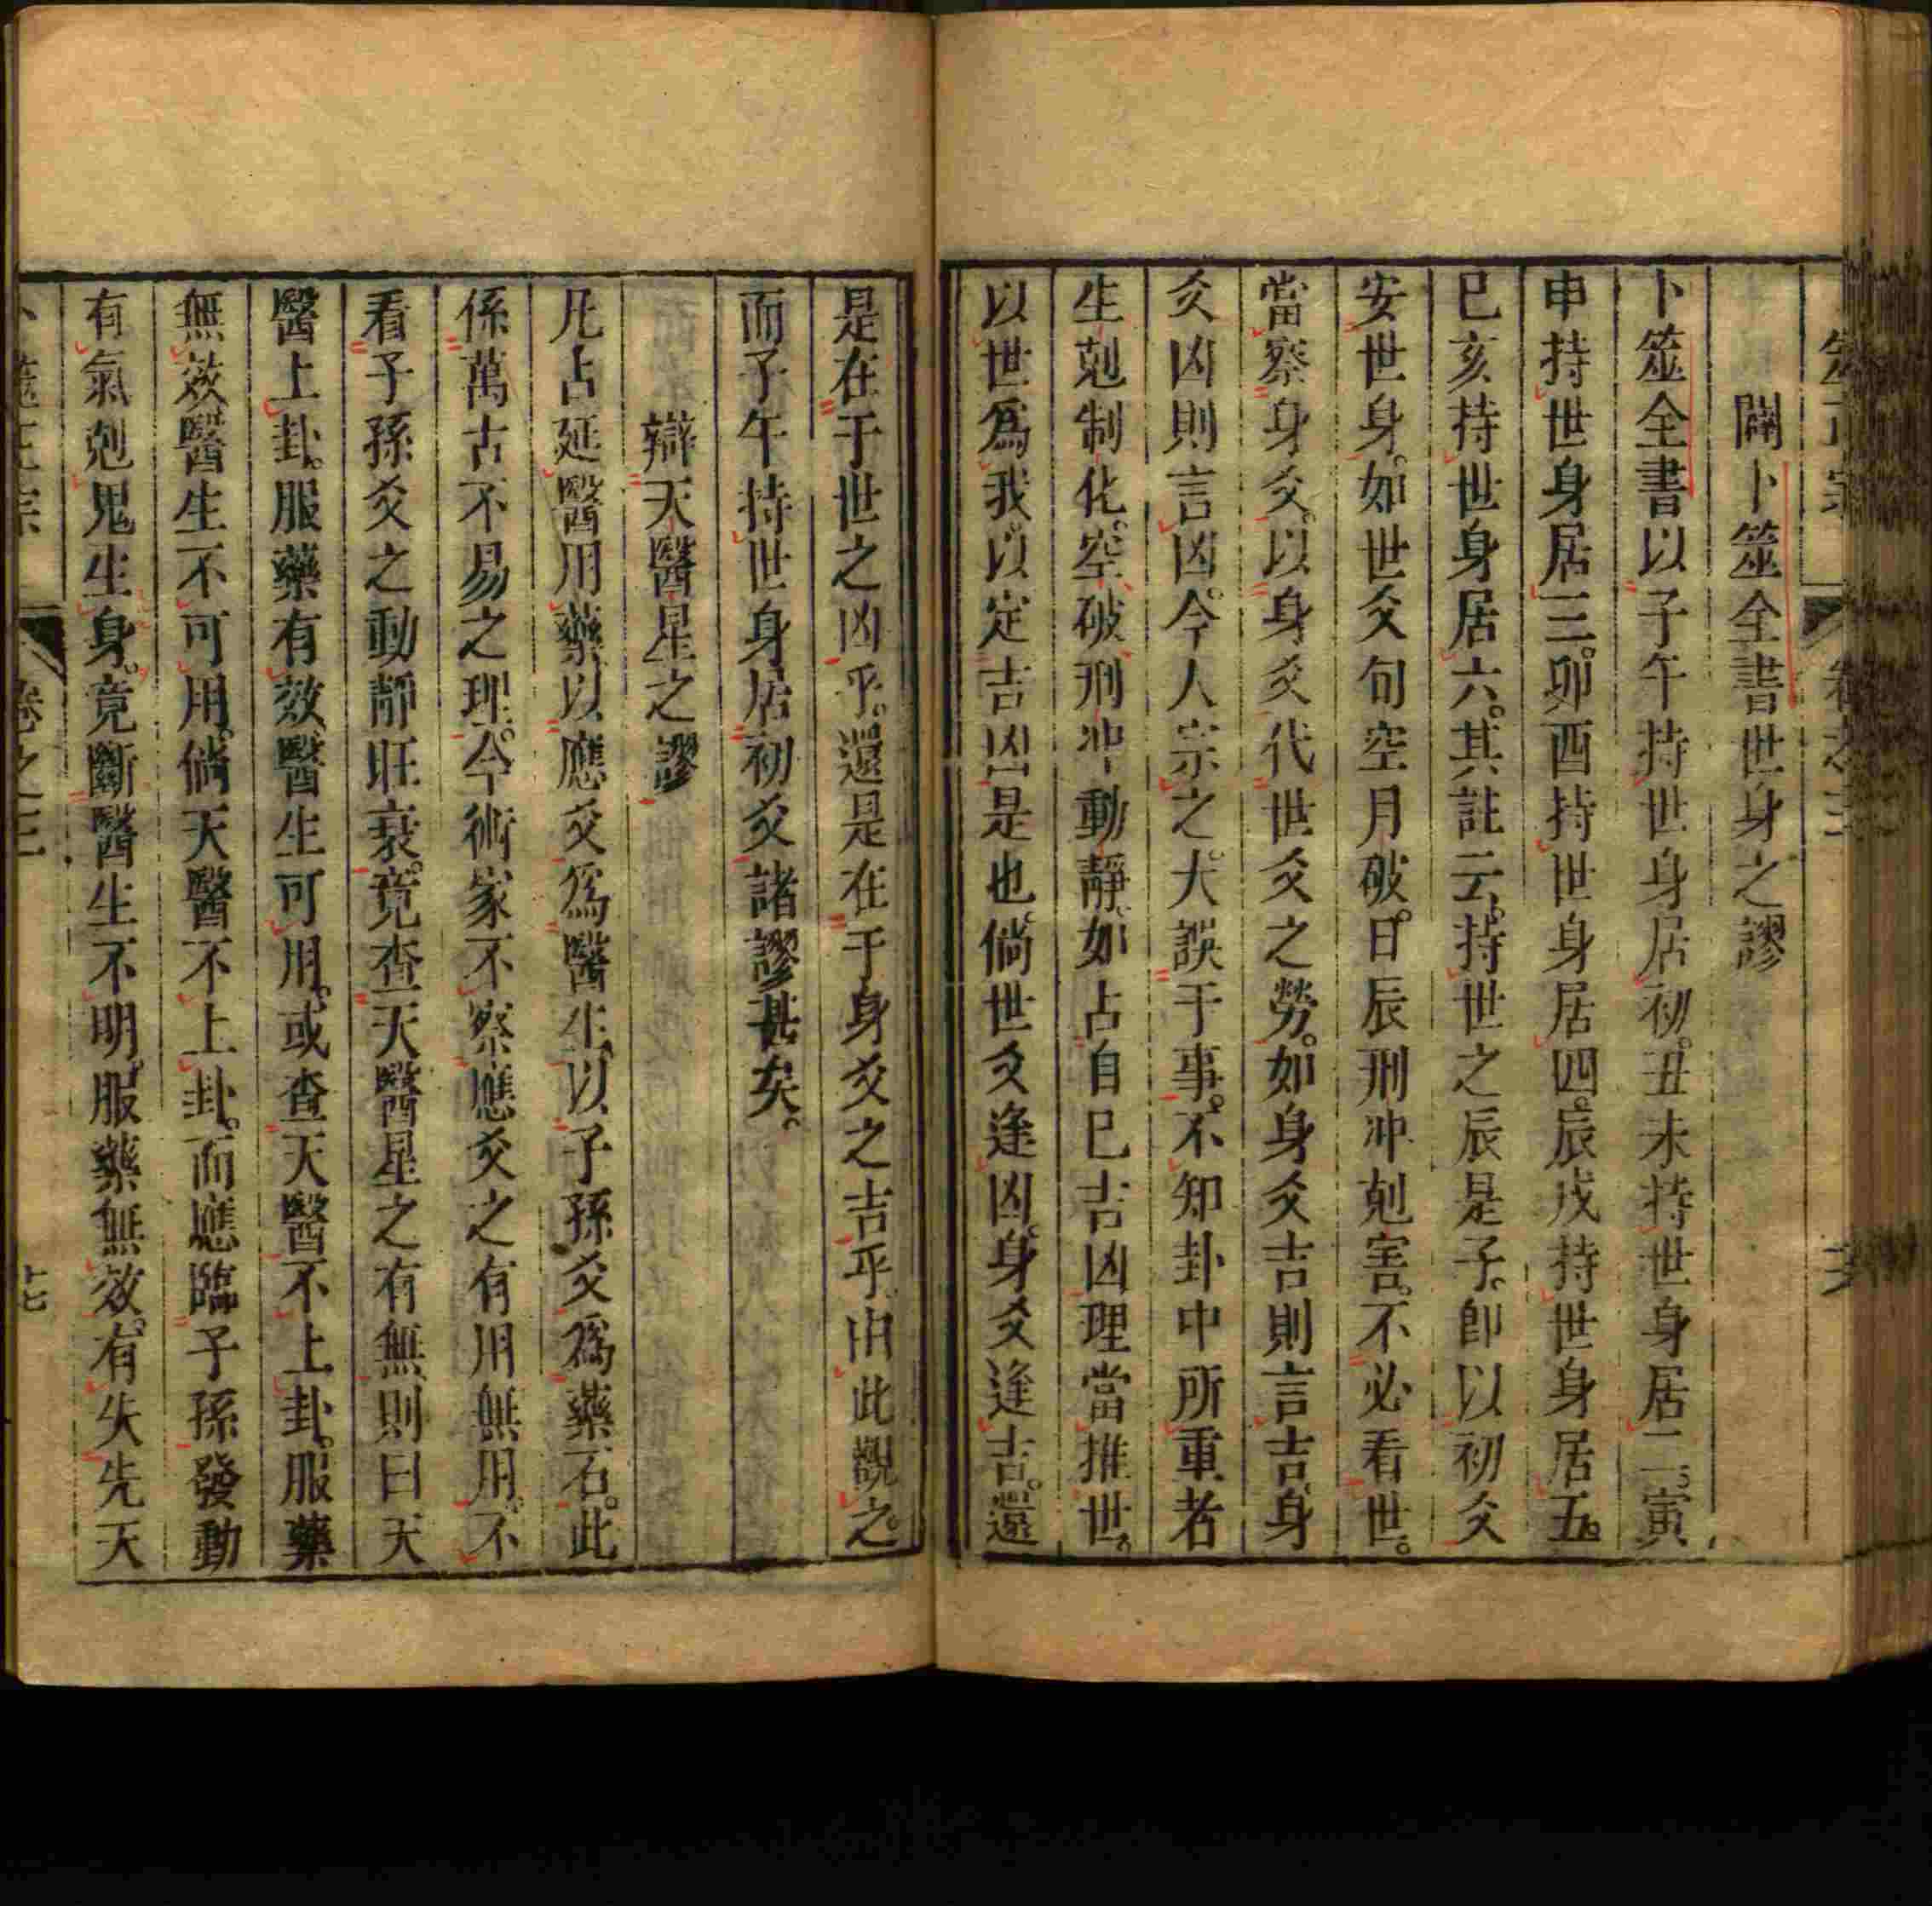 闢卜筮全書世身之謬
卜筮全書以子午持世身居初。丑未持世身居二。寅
申持世身居三。卯酉持世身居四。辰戌持世身居五。
巳亥持世身居六。其註云。持世之辰是子。卽以初爻
安世身。如世爻旬空月破。日辰刑冲剋害。不必看世。
當察身爻。以身爻代世爻之勞。如身爻吉則言吉身
爻凶則言凶。今人宗之。大誤于事。不知卦中所重者
生剋制化。空破刑冲動靜。如占自已吉凶理當推世。
以世爲我。以定吉凶是也。倘世爻逢凶。身爻逢吉。還
是在于世之凶乎。還是在于身爻之吉乎。由此觀之。
而子午持世身居初爻諸謬甚矣。
辯天醫星之謬
凡占延醫用藥以應爻爲醫生。以子孫爻爲藥石。此
係萬古不易之理。今術家不察應爻之有用無用。不
看子孫爻之動靜旺衰。竟查天醫星之有無則曰天
醫上卦。服藥有效。醫生可用。或查天醫不上卦。服藥
無效醫生不可用。倘天醫不上卦。而應臨子孫發動
有氣剋鬼生身。竟斷醫生不明。服藥無效。有失先天
卜筮正宗 卷之三 十七